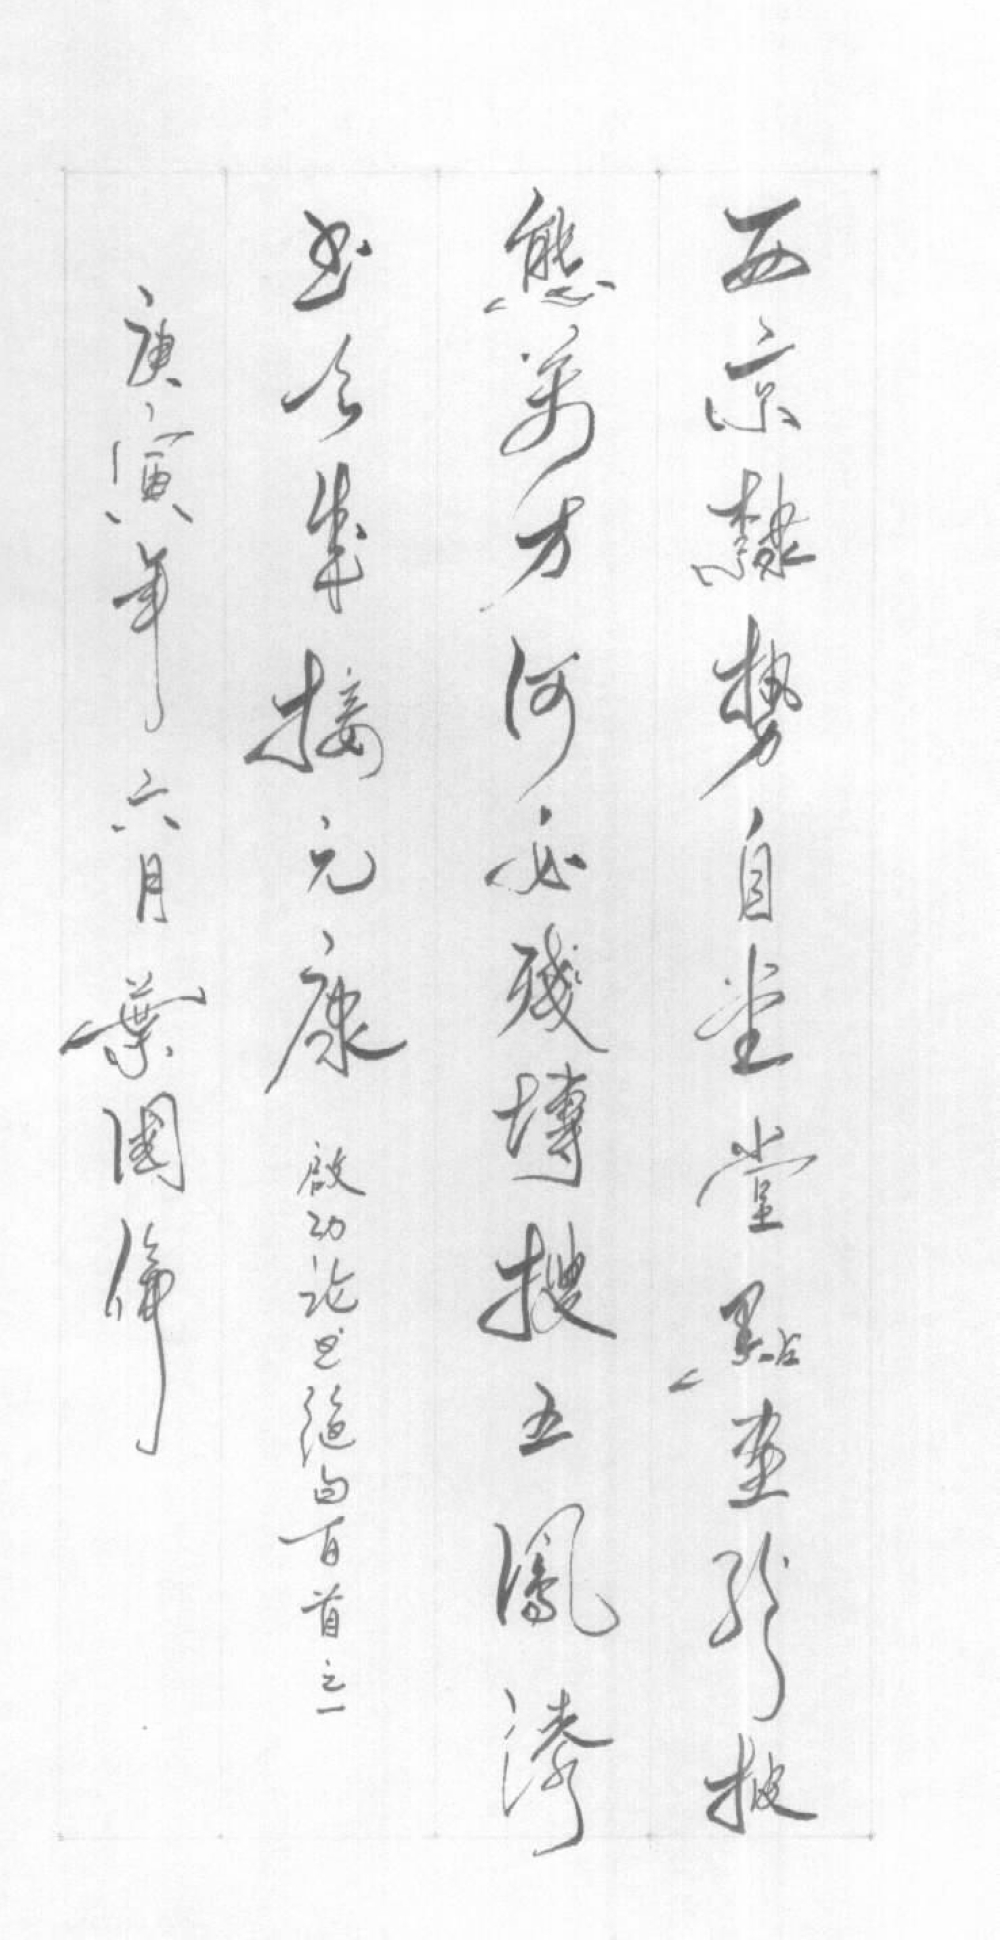 西京隸勢自堂堂點畫紛披
態萬方何必殘塼搜五鳳漆
书今接元康 啟功论书絕句百首之一
庚寅年六月葉國偉